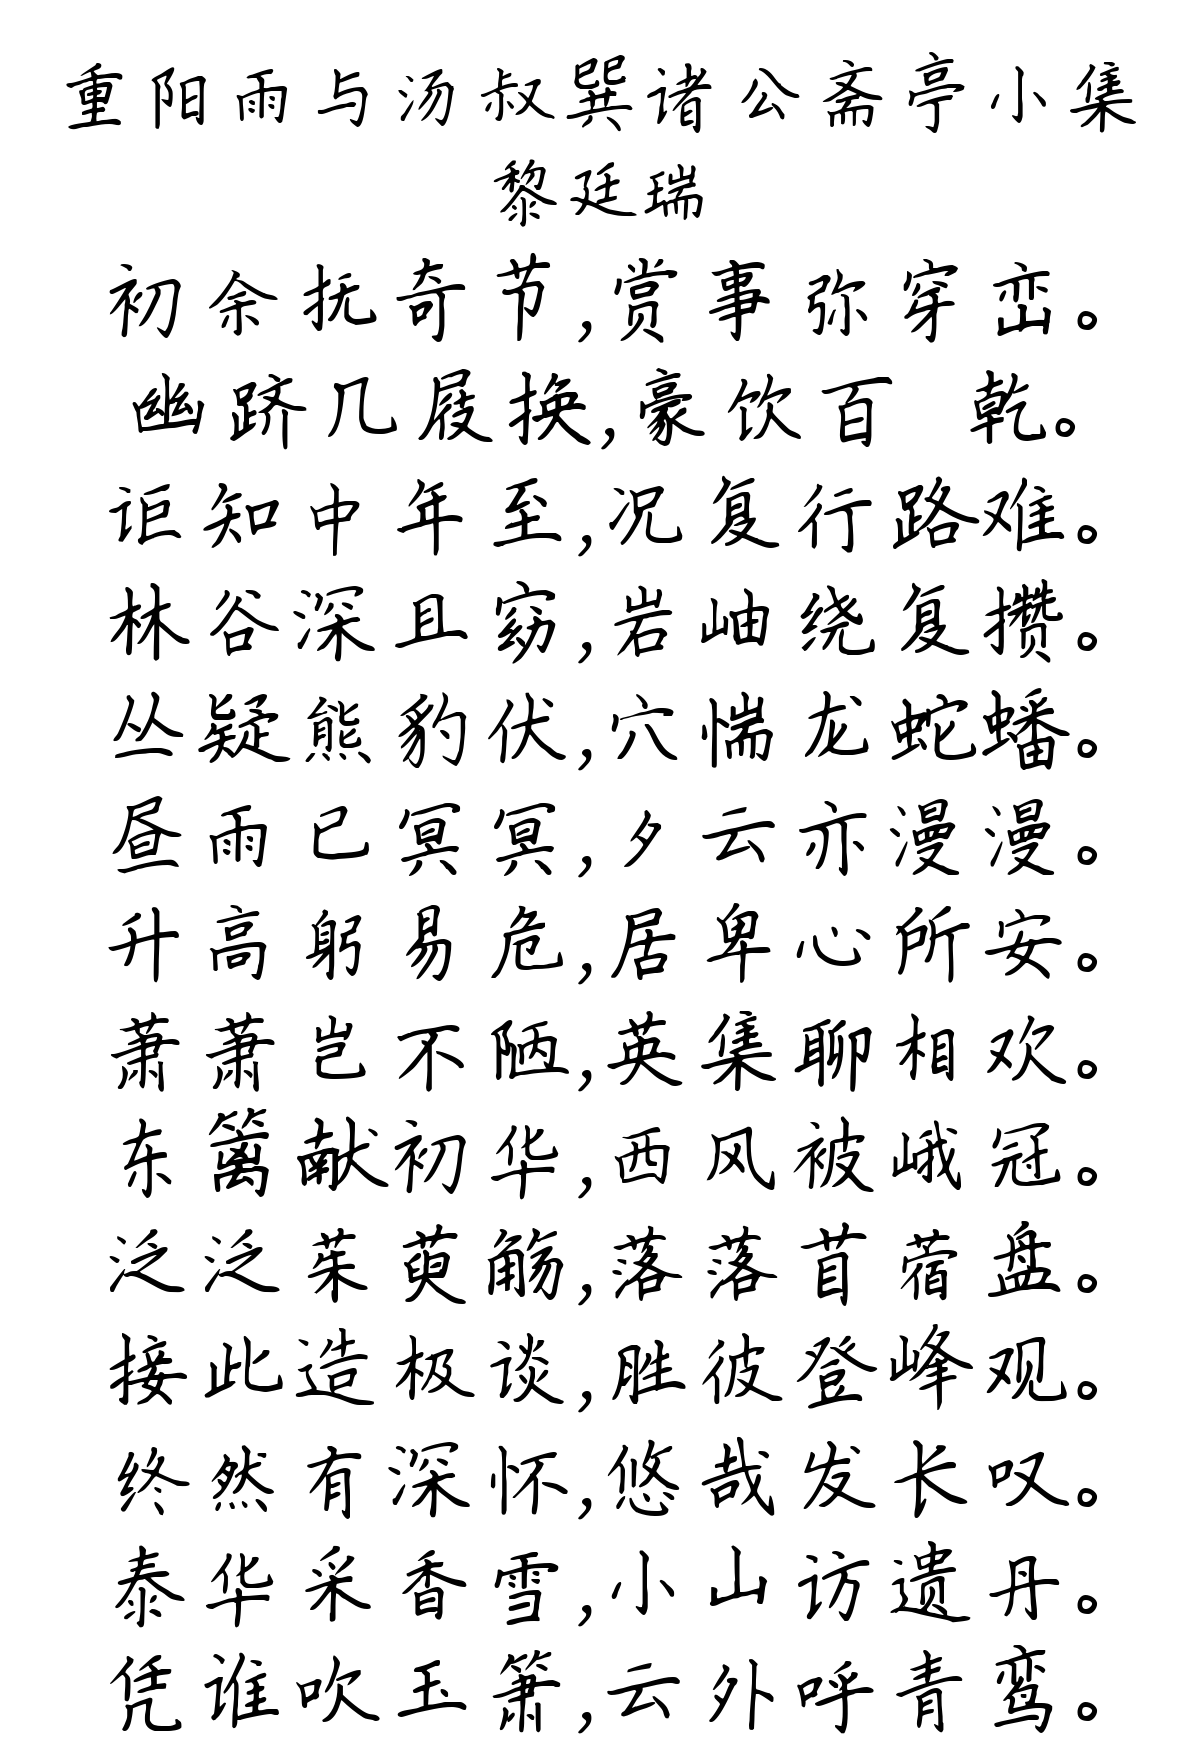 重阳雨与汤叔巽诸公斋亭小集
黎廷瑞
初余抚奇节,赏事弥穿峦。
幽跻几屐换,豪饮百 乾。
讵知中年至,况复行路难。
林谷深且窈,岩岫绕复攒。
丛疑熊豹伏,穴惴龙蛇蟠。
昼雨已冥冥,夕云亦漫漫。
升高躬易危,居卑心所安。
萧萧岂不陋,英集聊相欢。
东篱献初华,西风被峨冠。
泛泛茱萸觞,落落苜蓿盘。
接此造极谈,胜彼登峰观。
终然有深怀,悠哉发长叹。
泰华采香雪,小山访遗丹。
凭谁吹玉箫,云外呼青鸾。